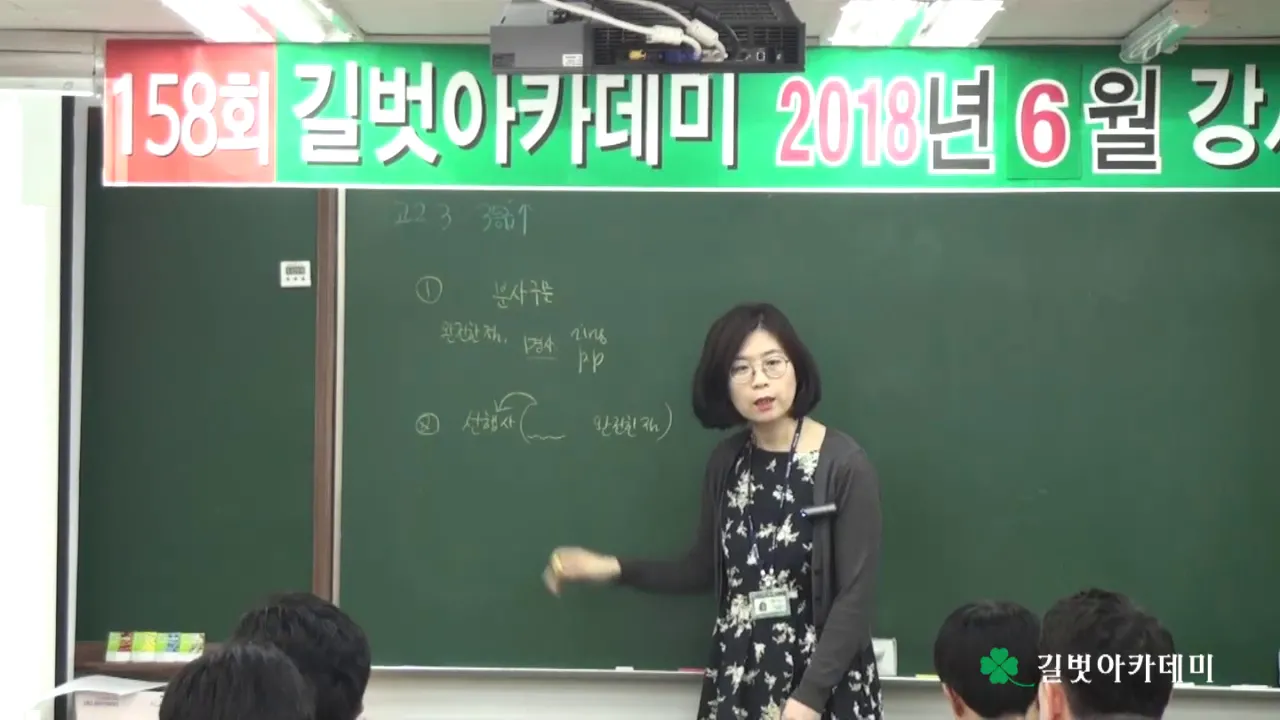 158회 길벗아카데미 2018년 6월 강
고2 3 3등급↑
① 분사구문
완전한 절, ing
pp
② 선행사( 완전한 절)
길벗아카데미